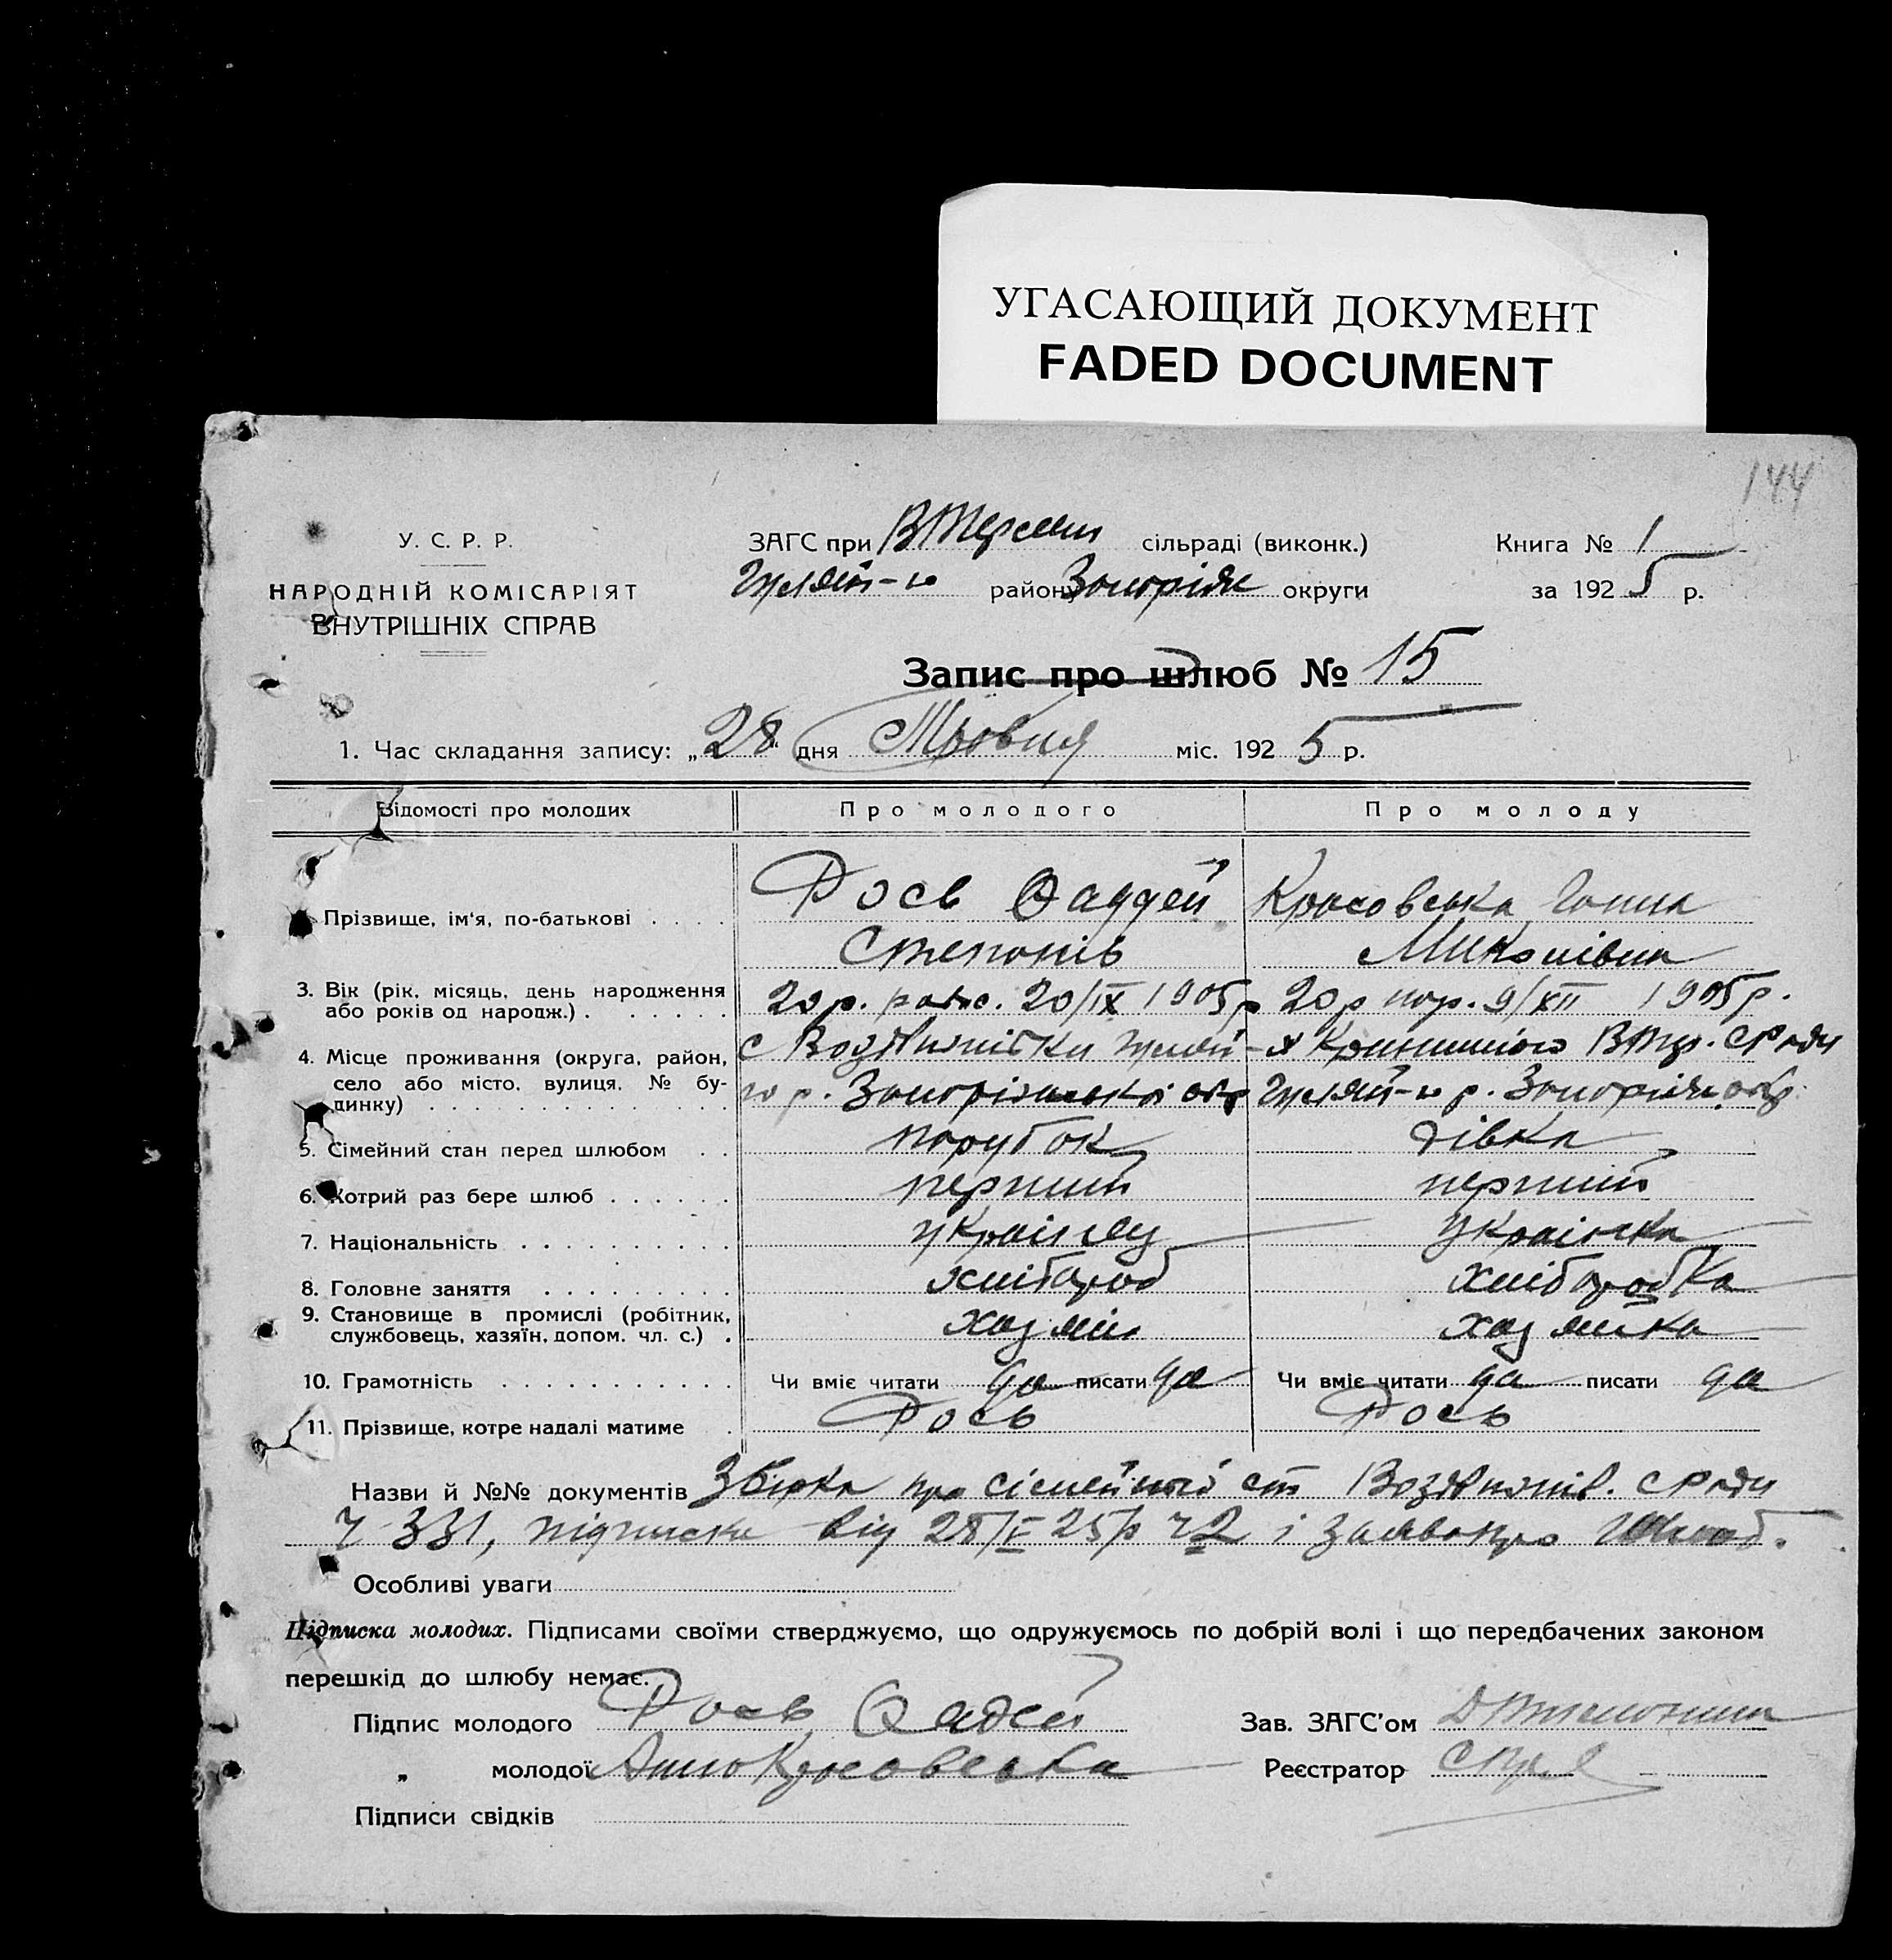 УГАСАЮЩИЙ ДОКУМЕНТ
FADED DOCUMENT
144
У. С. Р. Р.
НАРОДНІЙ КОМІСАРІЯТ
ВНУТРІШНІХ СПРАВ
ЗАГС при сільраді (виконк.)
району округи
Книга № 1
за 1925 р.
Запис про шлюб № 15
1. Час складання запису: „28“ дня міс. 1925 р.
Відомості про молодих Про молодого Про молоду
Прізвище, ім'я, по-батькові . . . . Рось Фаддей Красовська Ганна
Степанів Миколівна
3. Вік (рік, місяць, день народження 20 р. 20/IX 1905 р 20 р нар. 9/XII 1905 р.
або років од народж.) . . . . . .
4. Місце проживання (округа, район, с Воздвижівки
село або місто, вулиця, № бу- р. Запорізької окр р. окр.
динку) . . . . . . . . . . . . . .
5. Сімейний стан перед шлюбом . . парубок дівка
6. Котрий раз бере шлюб . . . . . . перший перший
7. Національність . . . . . . . . . . українец українка
8. Головне заняття . . . . . . . . . хлібороб хліборобка
9. Становище в промислі (робітник, хазяїн хазяйка
службовець, хазяїн, допом. чл. с.) .
10. Грамотність . . . . . . . . . . . Чи вміє читати да писати да Чи вміє читати да писати да
11. Прізвище, котре надалі матиме . Рось Рось
Назви й №№ документів про сімейний ст
ч 331, підписка від 25 р ч 2 і заява про шлюб.
Особливі уваги
Підписка молодих. Підписами своїми стверджуємо, що одружуємось по добрій волі і що передбачених законом
перешкід до шлюбу немає.
Підпис молодого Рось Фадей Зав. ЗАГС'ом
„ молодої Анна Красовська Реєстратор
Підписи свідків